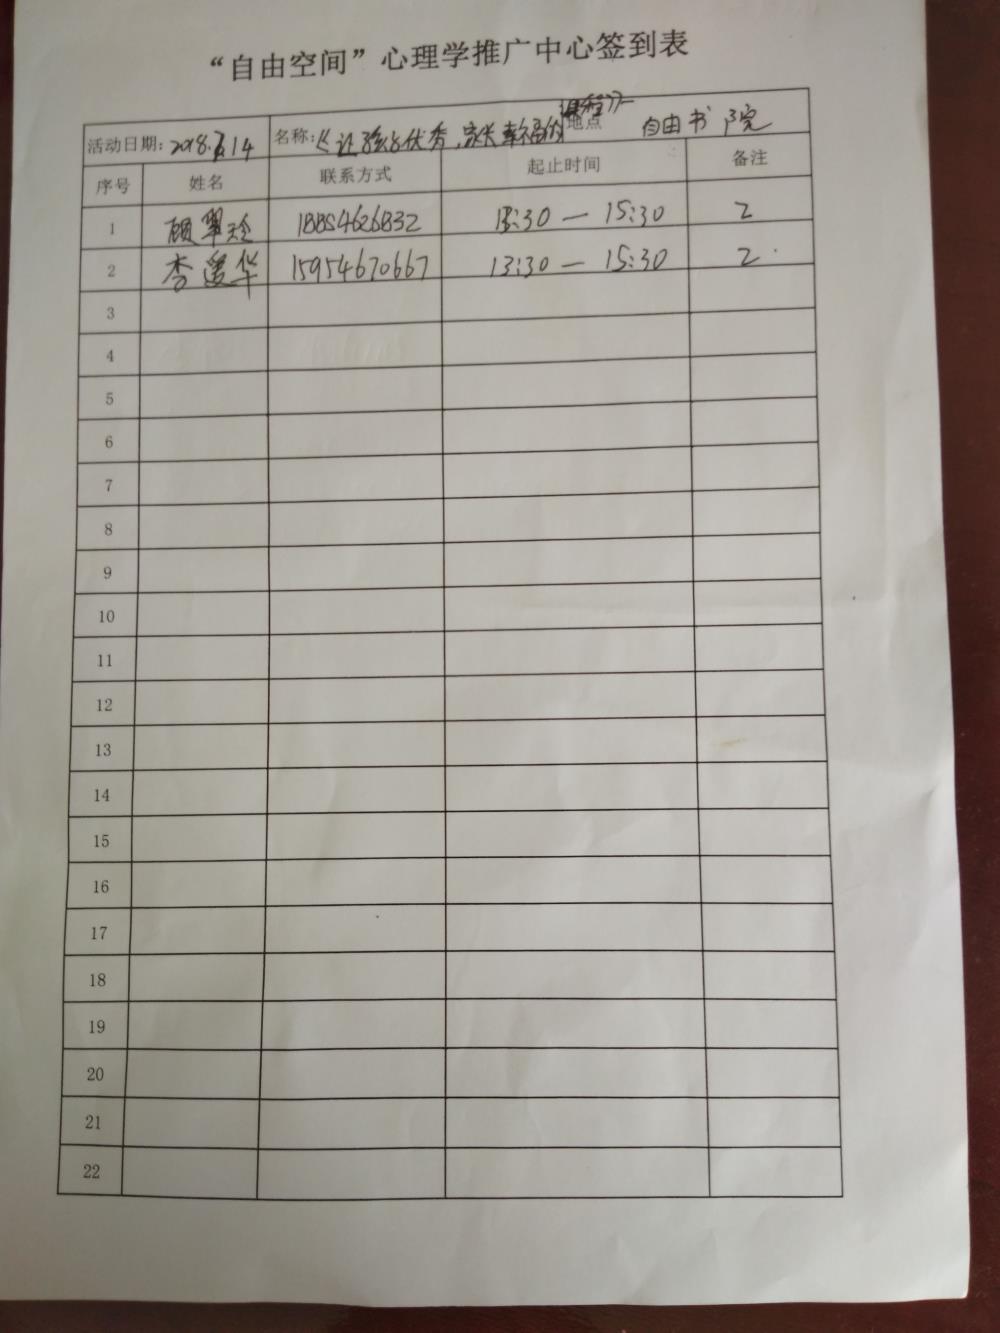 “自由空间”心理学推广中心签到表
活动日期: 2018.7.14 名称:《让孩子优秀,家长幸福的课程》 地点 自由书院
序号 姓名 联系方式 起止时间 备注
1 顾翠玲 18854626832 13:30 — 15:30 2
2 李爱华 15954670667 13:30 — 15:30 2
3
4
5
6
7
8
9
10
11
12
13
14
15
16
17
18
19
20
21
22